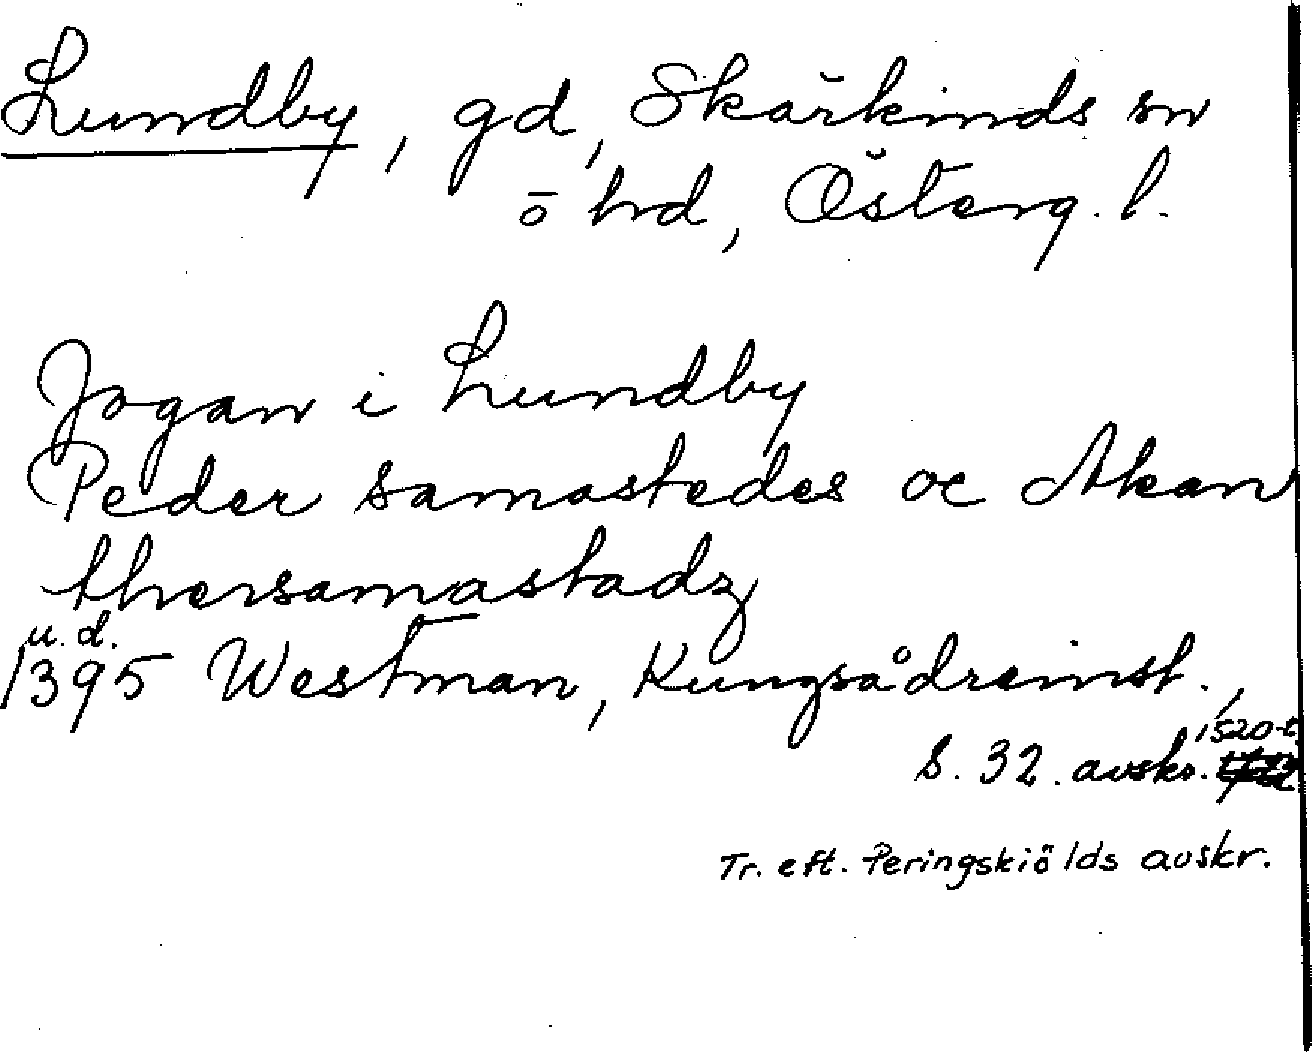 Lundby, gd, Skärkinds sn
ö hd, Österg. l.
Jogan i Lundby
Peder samastedes oc Akan
thersamastadz
u. d.
1395 Westman, Kungsådreinst.,
s. 32. avskr. 1520-t
Tr. eft. Peringskiölds avskr.